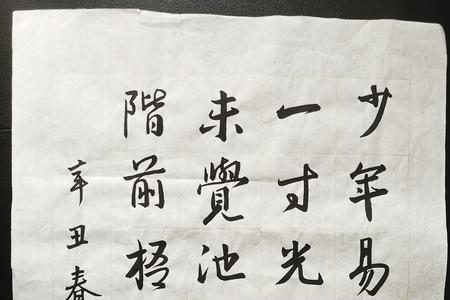 少年易
一寸光
未覺池
階前梧
辛丑春